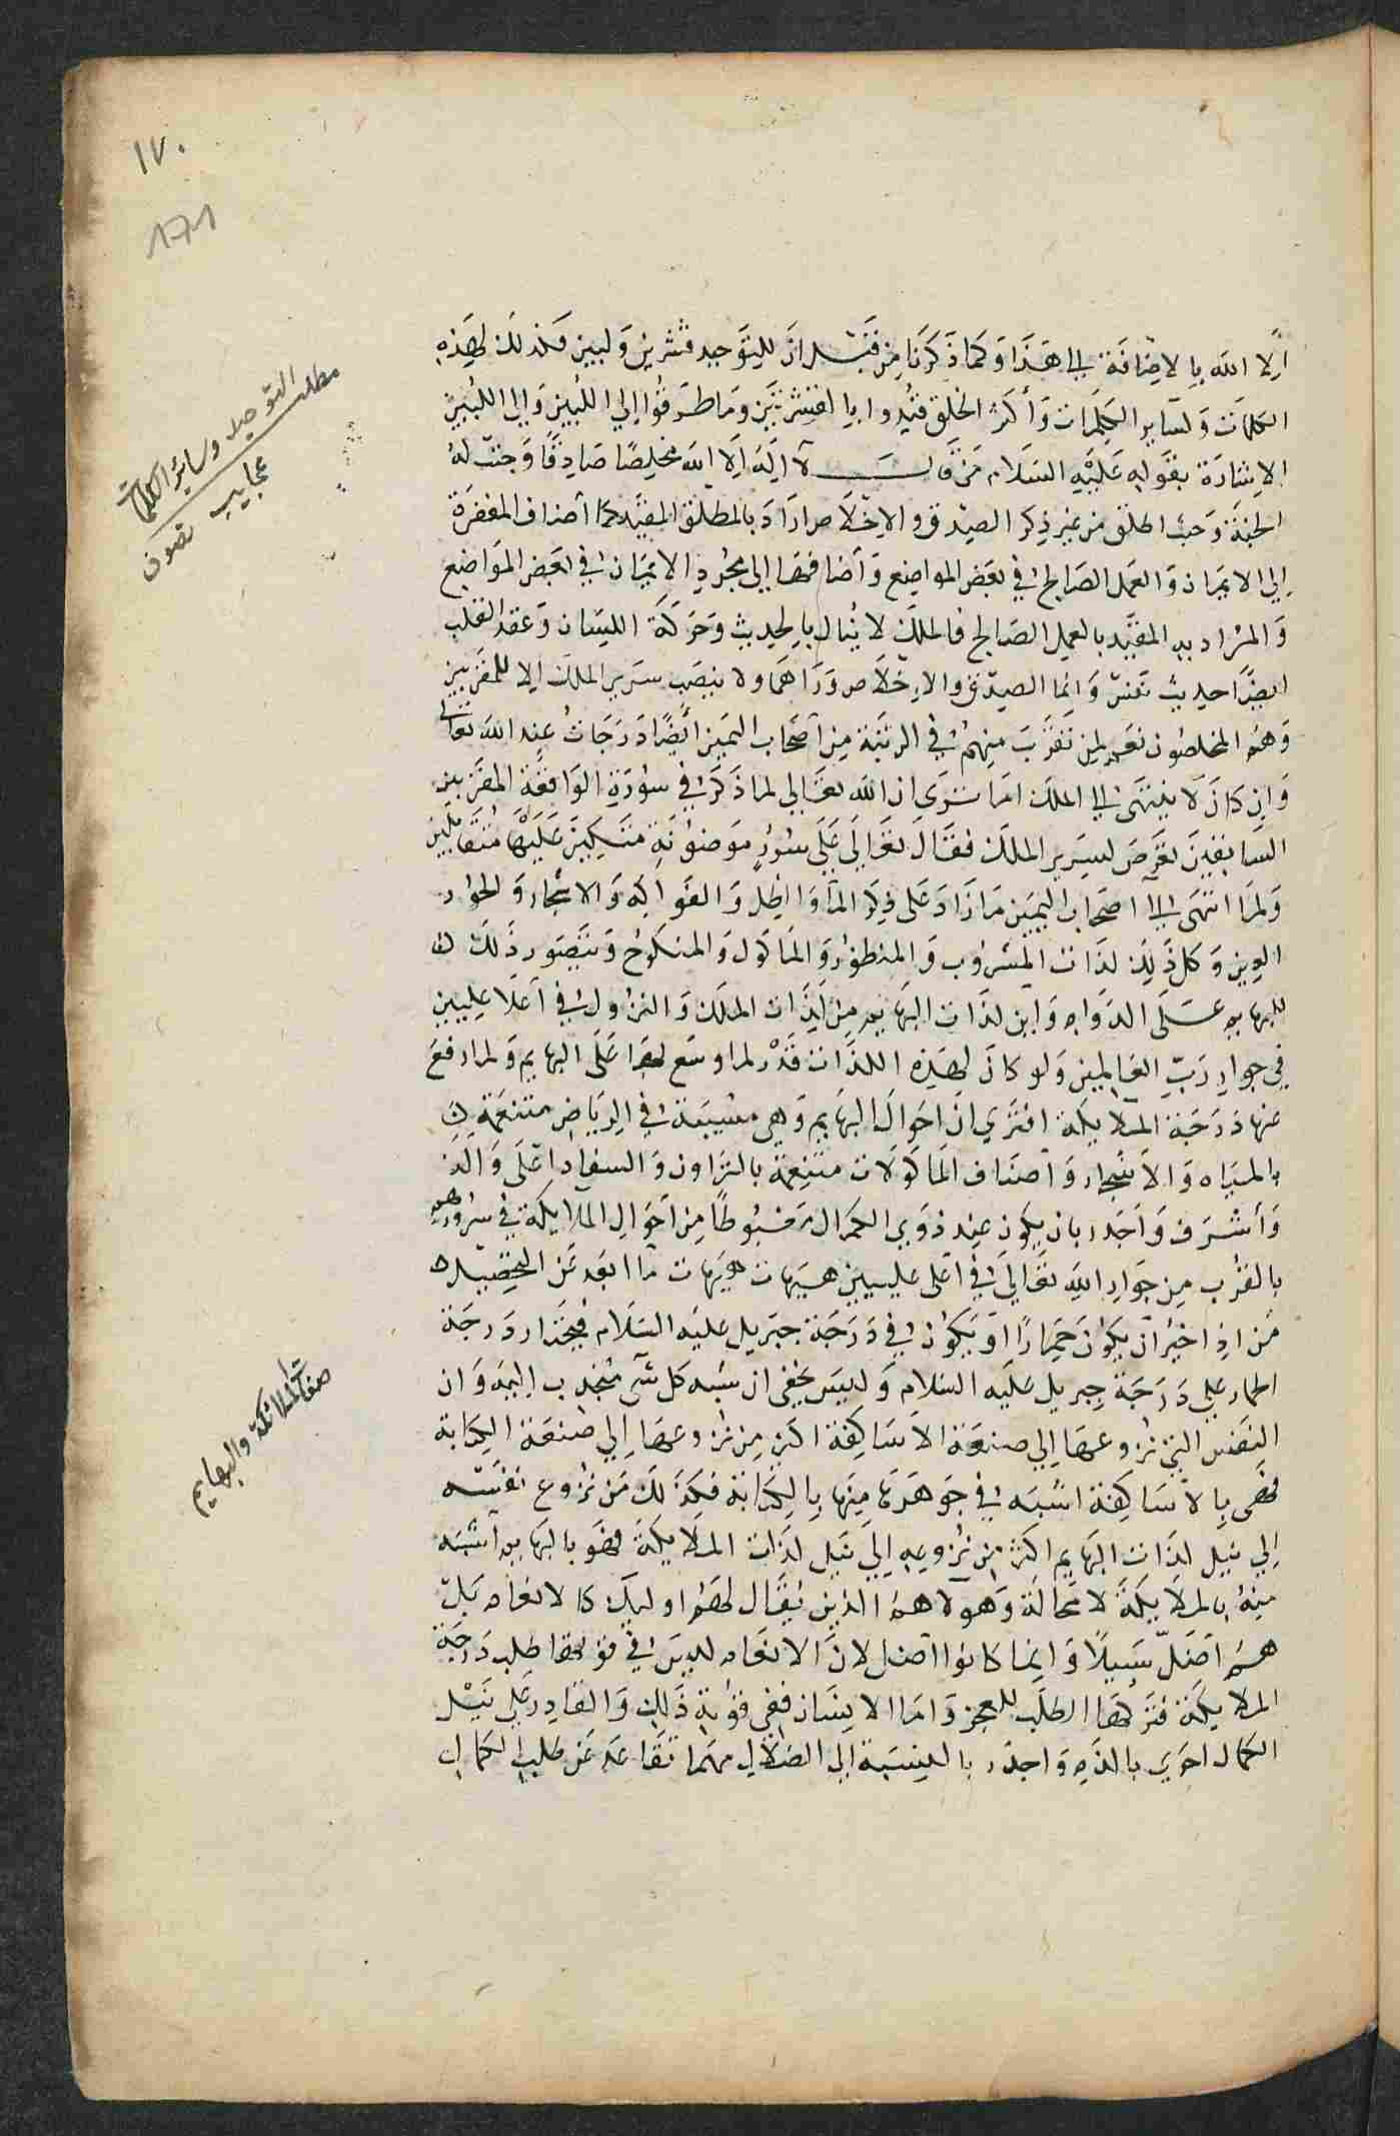 ١٧٠
171
إلا الله بالاضافة الى هذا وكما ذكرنا من قبل ان للتوحيد قشرين ولبين فكذلك لهذه
الكلمات ولسائر الكلمات وأكثر الخلق قيدوا بالقشرتين وما طرقوا الى اللبين والى اللبين
الاشارة بقوله عليه السلام من قال لا اله الا الله مخلصا صادقا وجبت له
الجنة وحيث اطلق من غير ذكر الصدق والاخلاص اراد بالمطلق المقيد كما أضاف المغفرة
الى الايمان والعمل الصالح في بعض المواضع وأضافها الى مجرد الايمان في بعض المواضع
والمراد به المقيد بالعمل الصالح فالملك لا ينال بالحديث وحركة اللسان وعقد القلب
ايضا حديث نفس وانما الصدق والاخلاص وراهما ولا ينصب سرير الملك الا للمقربين
وهم المخلصون نعم لمن تقرب منهم في الرتبة من أصحاب اليمين أيضا درجات عند الله تعالى
وان كان لا ينتهى الى الملك اما ترى ان الله تعالى لما ذكر في سورة الواقعة المقربين
السابقين تعرض لسرير الملك فقال تعالى على سرر موضونة متكيين عليها متقابلين
ولما انتهى الى اصحاب اليمين ما زاد على ذكر الما والظل والفواكه والاشجار والحور
العين وكل ذلك لذات المشروب والمنظور والماكول والمنكوح ويتصور ذلك
للبهايم على الدوام واين لذات البهايم من لذات الملك والنزول في أعلا عليين
في جوار رب العالمين ولو كان لهذه اللذات قدر لما وسع لها على البهايم ولما رفع
عنها درجة الملايكة افترى ان احوال البهايم وهي مسيبة في الرياض متنعمة
بالمياه والاشجار وأصناف الماكولات متنعمة بالنزوان والسفاد اعلى والذ
وأشرف وأجدر بان يكون عند ذوي الكمال مغبوطا من أحوال الملايكة في سرورهم
بالقرب من جوار الله تعالى في أعلى عليين هيهات هيهات ما ابعد عن التحصيل
من اذا خير أن يكون حمارا او يكون في درجة جبريل عليه السلام فيختار درجة
الحمار على درجة جبريل عليه السلام وليس يخفى ان شبه كل شى منجذب اليه وان
النفس التي نزوعها إلى صنعة الاساكفة اكثر من نزوعها الى صنعة الكتابة
فهى بالاساكفة اشبه في جوهرها منها بالكتابة فكذلك من نزوع نفسه
الى نيل لذات البهايم اكثر من نزوعه الى نيل لذات الملايكة فهو بالبهايم أشبه
منه بالملايكة لا محالة وهولا هم الذين يقال لهم اوليك كالانعام بل
هم أضل سبيلا وانما كانوا أضل لان الانعام ليس في قوتها طلب درجة
الملايكة فتركها الطلب للعجز واما الانسان ففي قوته ذلك والقادر على نيل
الكمال احرى بالذم واجدر بالنسبة الى الضلال مهما تقاعد عن طلب الكمال
مطلب التوحيد وساير الكلمات
عجايب تصون
صفات الملائكة والبهايم